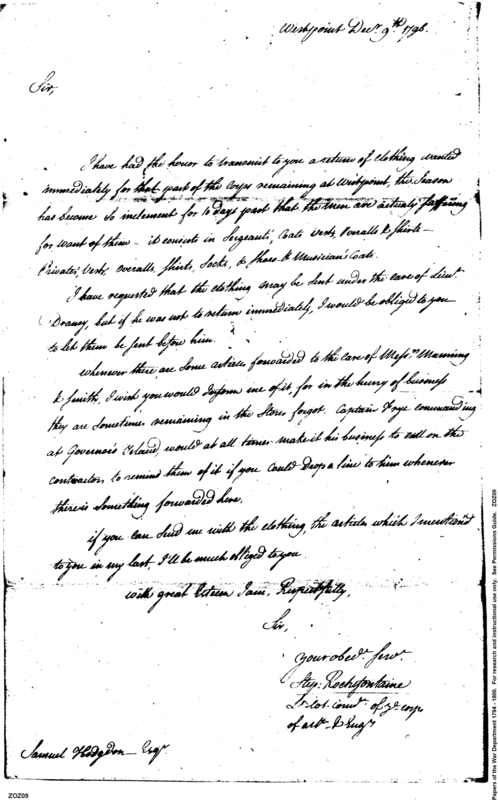 Westpoint Decr. 9th 1796.
Sir,
I have had the honor to transmit to you a return of clothing wanted
immediately for that part of the corps remaining at Westpoint, the Season
has become so inclement for 10 days past that the men are actualy suffering
for want of them - it consists in Sergeants', Coats Vests, Overalls & Shirts -
Privates; Vests, overalls, Shirts, Socks, & Shoes & Musician's Coats.
I have requested that the clothing may be sent under the care of Lieut
Drancy, but if he was not to return immediately, I would be obliged to you
to let them be sent before him.
whenever there are some articles forwarded to the care of Messrs Manning
& Smith, I wish you would inform me of it, for in the hurry of business
they are sometimes remaining in the Stores forgot. Captain Frye commanding
at Governor's Island, would at all times make it his business to call on the
contractors to remind them of it if you could drop a line to him whenever
there is something forwarded here.
if you can send me with the clothing, the articles which I mention'd
to you in my last, I'll be much obliged to you.
with great Esteem I am, Respectfully,
Sir,
your obedt. servt.
Step: Rochefontaine
Lt. Col. comdt. of ye corps
of artrs. & Engrs
Samuel Hodgdon - Esqr
ZOZ09
Papers of the War Department 1784 - 1800. For research and instructional use only. See Permissions Guide. ZOZ09